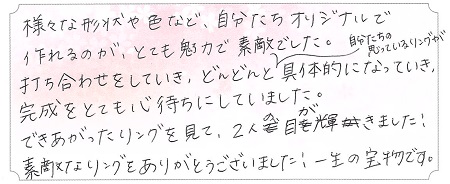 様々な形状や色など、自分たちオリジナルで
作れるのが、とても魅力で素敵でした。
自分たちの
思っているリングが
打ち合わせをしていき、どんどんと具体的になっていき、
完成をとても心待ちにしていました。
できあがったリングを見て、2人の目が輝きました!
素敵なリングをありがとうございました!一生の宝物です。